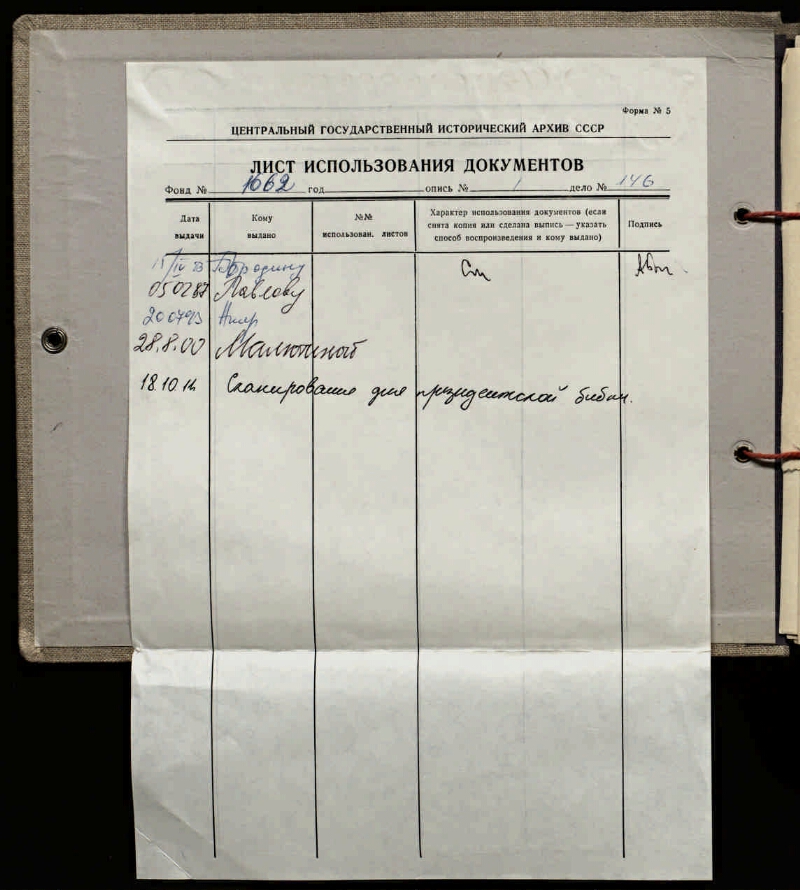 Форма № 5
ЦЕНТРАЛЬНЫЙ ГОСУДАРСТВЕННЫЙ ИСТОРИЧЕСКИЙ АРХИВ СССР
ЛИСТ ИСПОЛЬЗОВАНИЯ ДОКУМЕНТОВ
Фонд № 1662 год опись № 1 дело № 146
Дата выдачи
Кому выдано
№№ использован. листов
Характер использования документов (если снята копия или сделана выпись — указать способ воспроизведения и кому выдано)
Подпись
Бородину
050287 Павлову
200793
28.8.00 Малютиной
18.10.12. Сканирование для президентской библ.